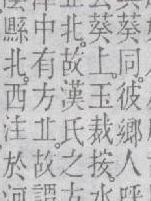 葵同。彼鄉人呼
葵上。玉裁按。水
丠。故漢氏之
中有方丠。故謂
縣北。西注於河